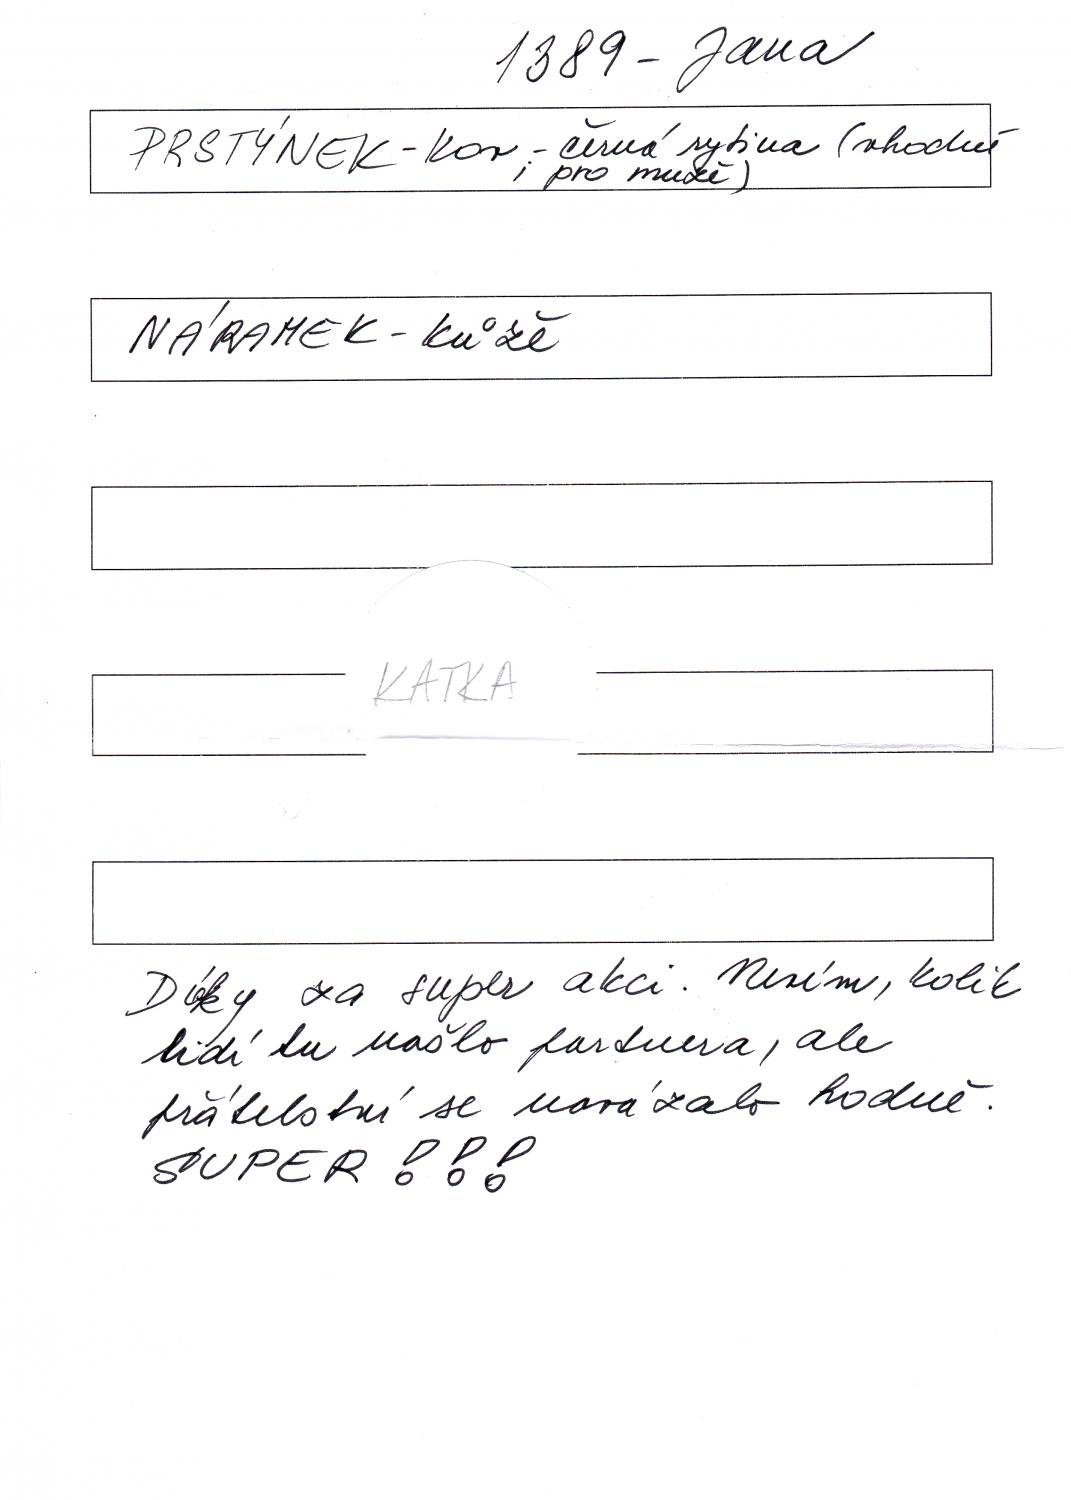 1389 - Jana
PRSTÝNEK - kov - černá rytina (vhodné
i pro muže)
NÁRAMEK - kůže
KATKA
Díky za super akci. Nevím, kolik
lidí tu našlo partnera, ale
přátelství se navázalo hodně.
SUPER!!!